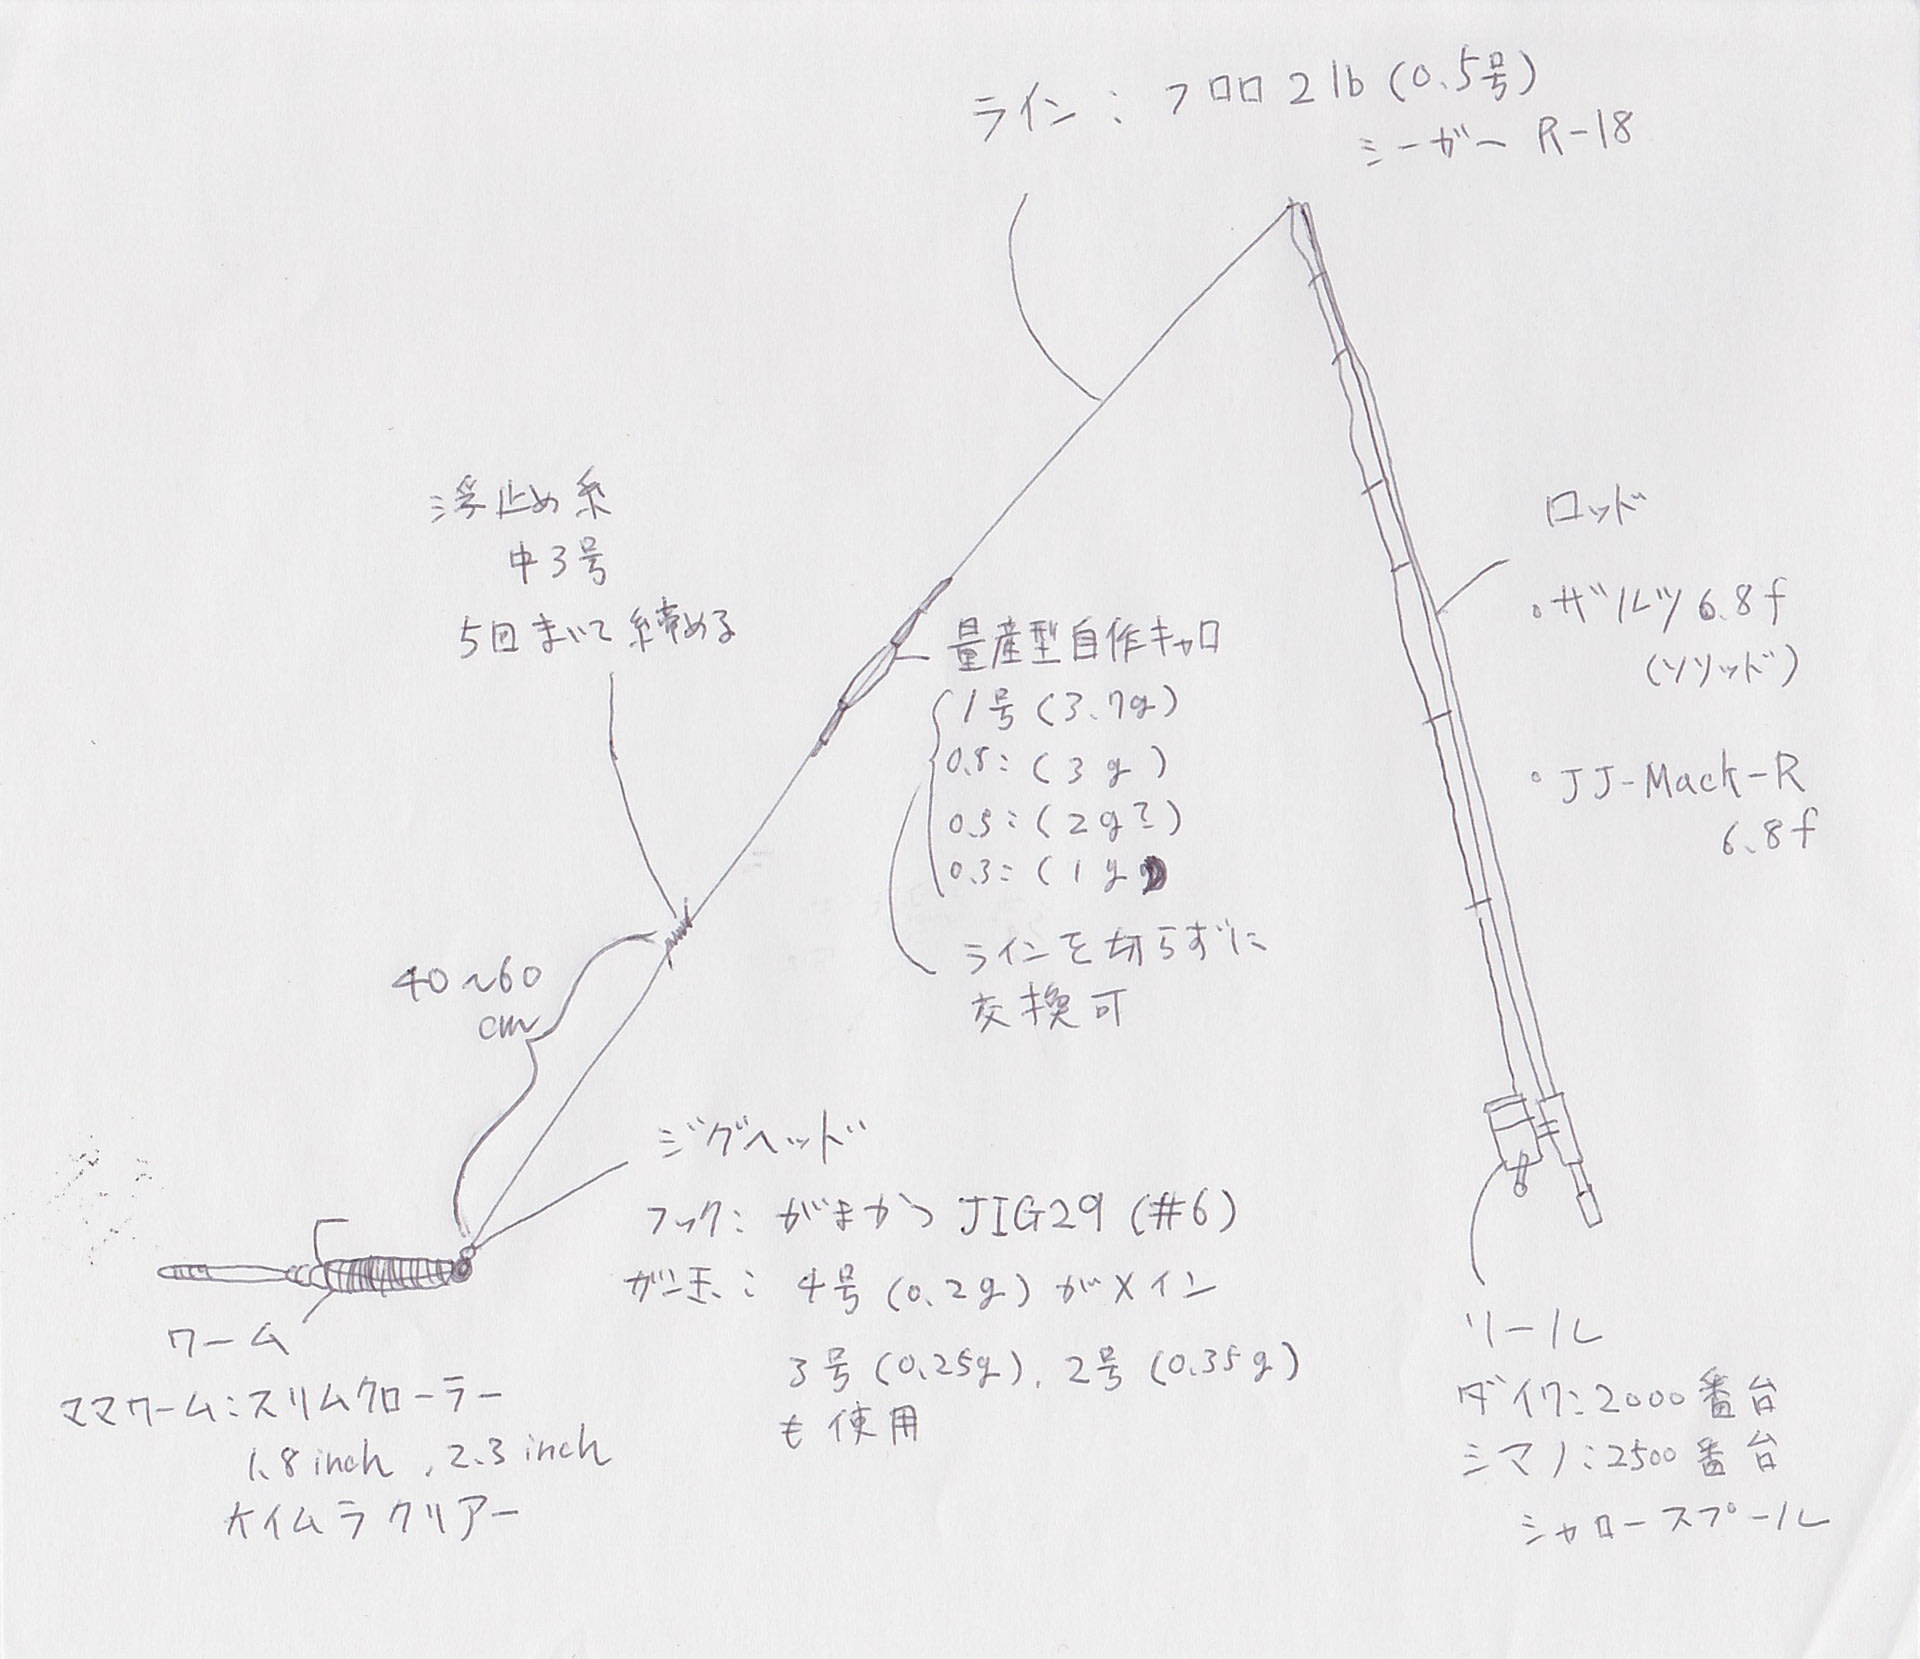 ライン：フロロ2lb(0.5号)
シーガー R-18
浮止め糸
中3号
5回まいて締める
量産型自作キャロ
1号(3.7g)
0.8:(3g)
0.5:(2g?)
0.3:(1g)
ラインを切らずに
交換可
ロッド
・ザルツ6.8f
(ソリッド)
・JJ-Mack-R
6.8f
40～60
cm
ジグヘッド
フック：がまかつ JIG29(#6)
ガン玉：4号(0.2g)がメイン
3号(0.25g), 2号(0.35g)
も使用
ワーム
ママワーム：スリムクローラー
1.8inch, 2.3inch
ケイムラクリアー
リール
ダイワ：2000番台
シマノ：2500番台
シャロースプール